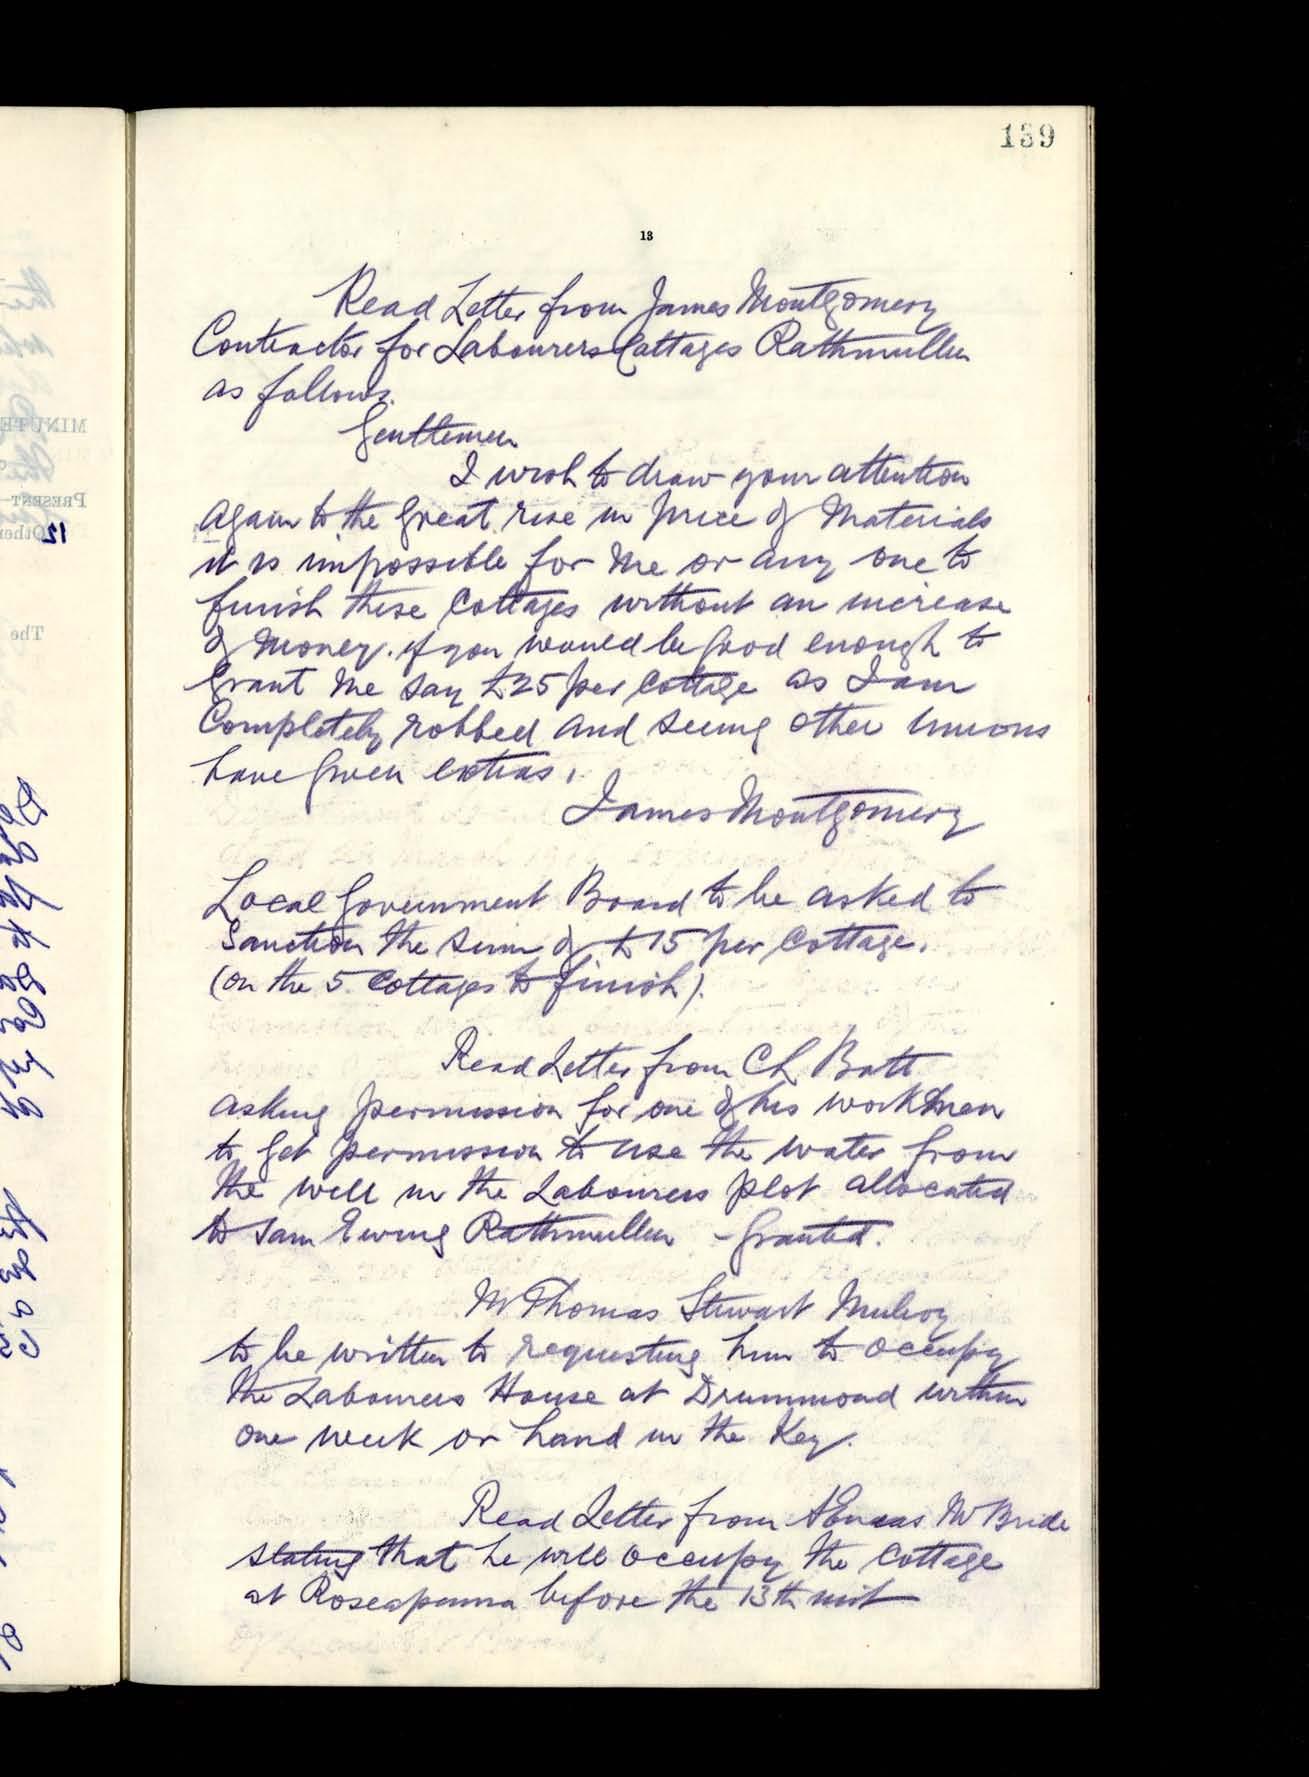 139
13
Read Letter from James Montgomery
Contractor for Labourers Cottages Rathmullen
as follows.
Gentlemen
I wish to draw your attention
again to the great rise in price of Materials
it is impossible for me or any one to
finish these Cottages without an increase
of Money. if you would be good enough to
Grant me say £25 per Cottage as I am
Completely robbed and seeing other Unions
have given extras.
James Montgomery
Local Government Board to be asked to
Sanction the sum of £15 per Cottage.
(on the 5 Cottages to finish).
Read Letter from Ch Batt
asking permission for one of his workmen
to get permission to use the water from
the well in the Labourers plot allocated
to Sam Ewing Rathmullen - Granted.
Mr Thomas Stewart Mulroy
to be written to requesting him to occupy
the Labourers House at Drummond within
one week or hand in the Key.
Read Letter from AEneas McBride
stating that he will occupy the Cottage
at Roseapenna before the 13th inst
MINUTE
PRESENT
12
The